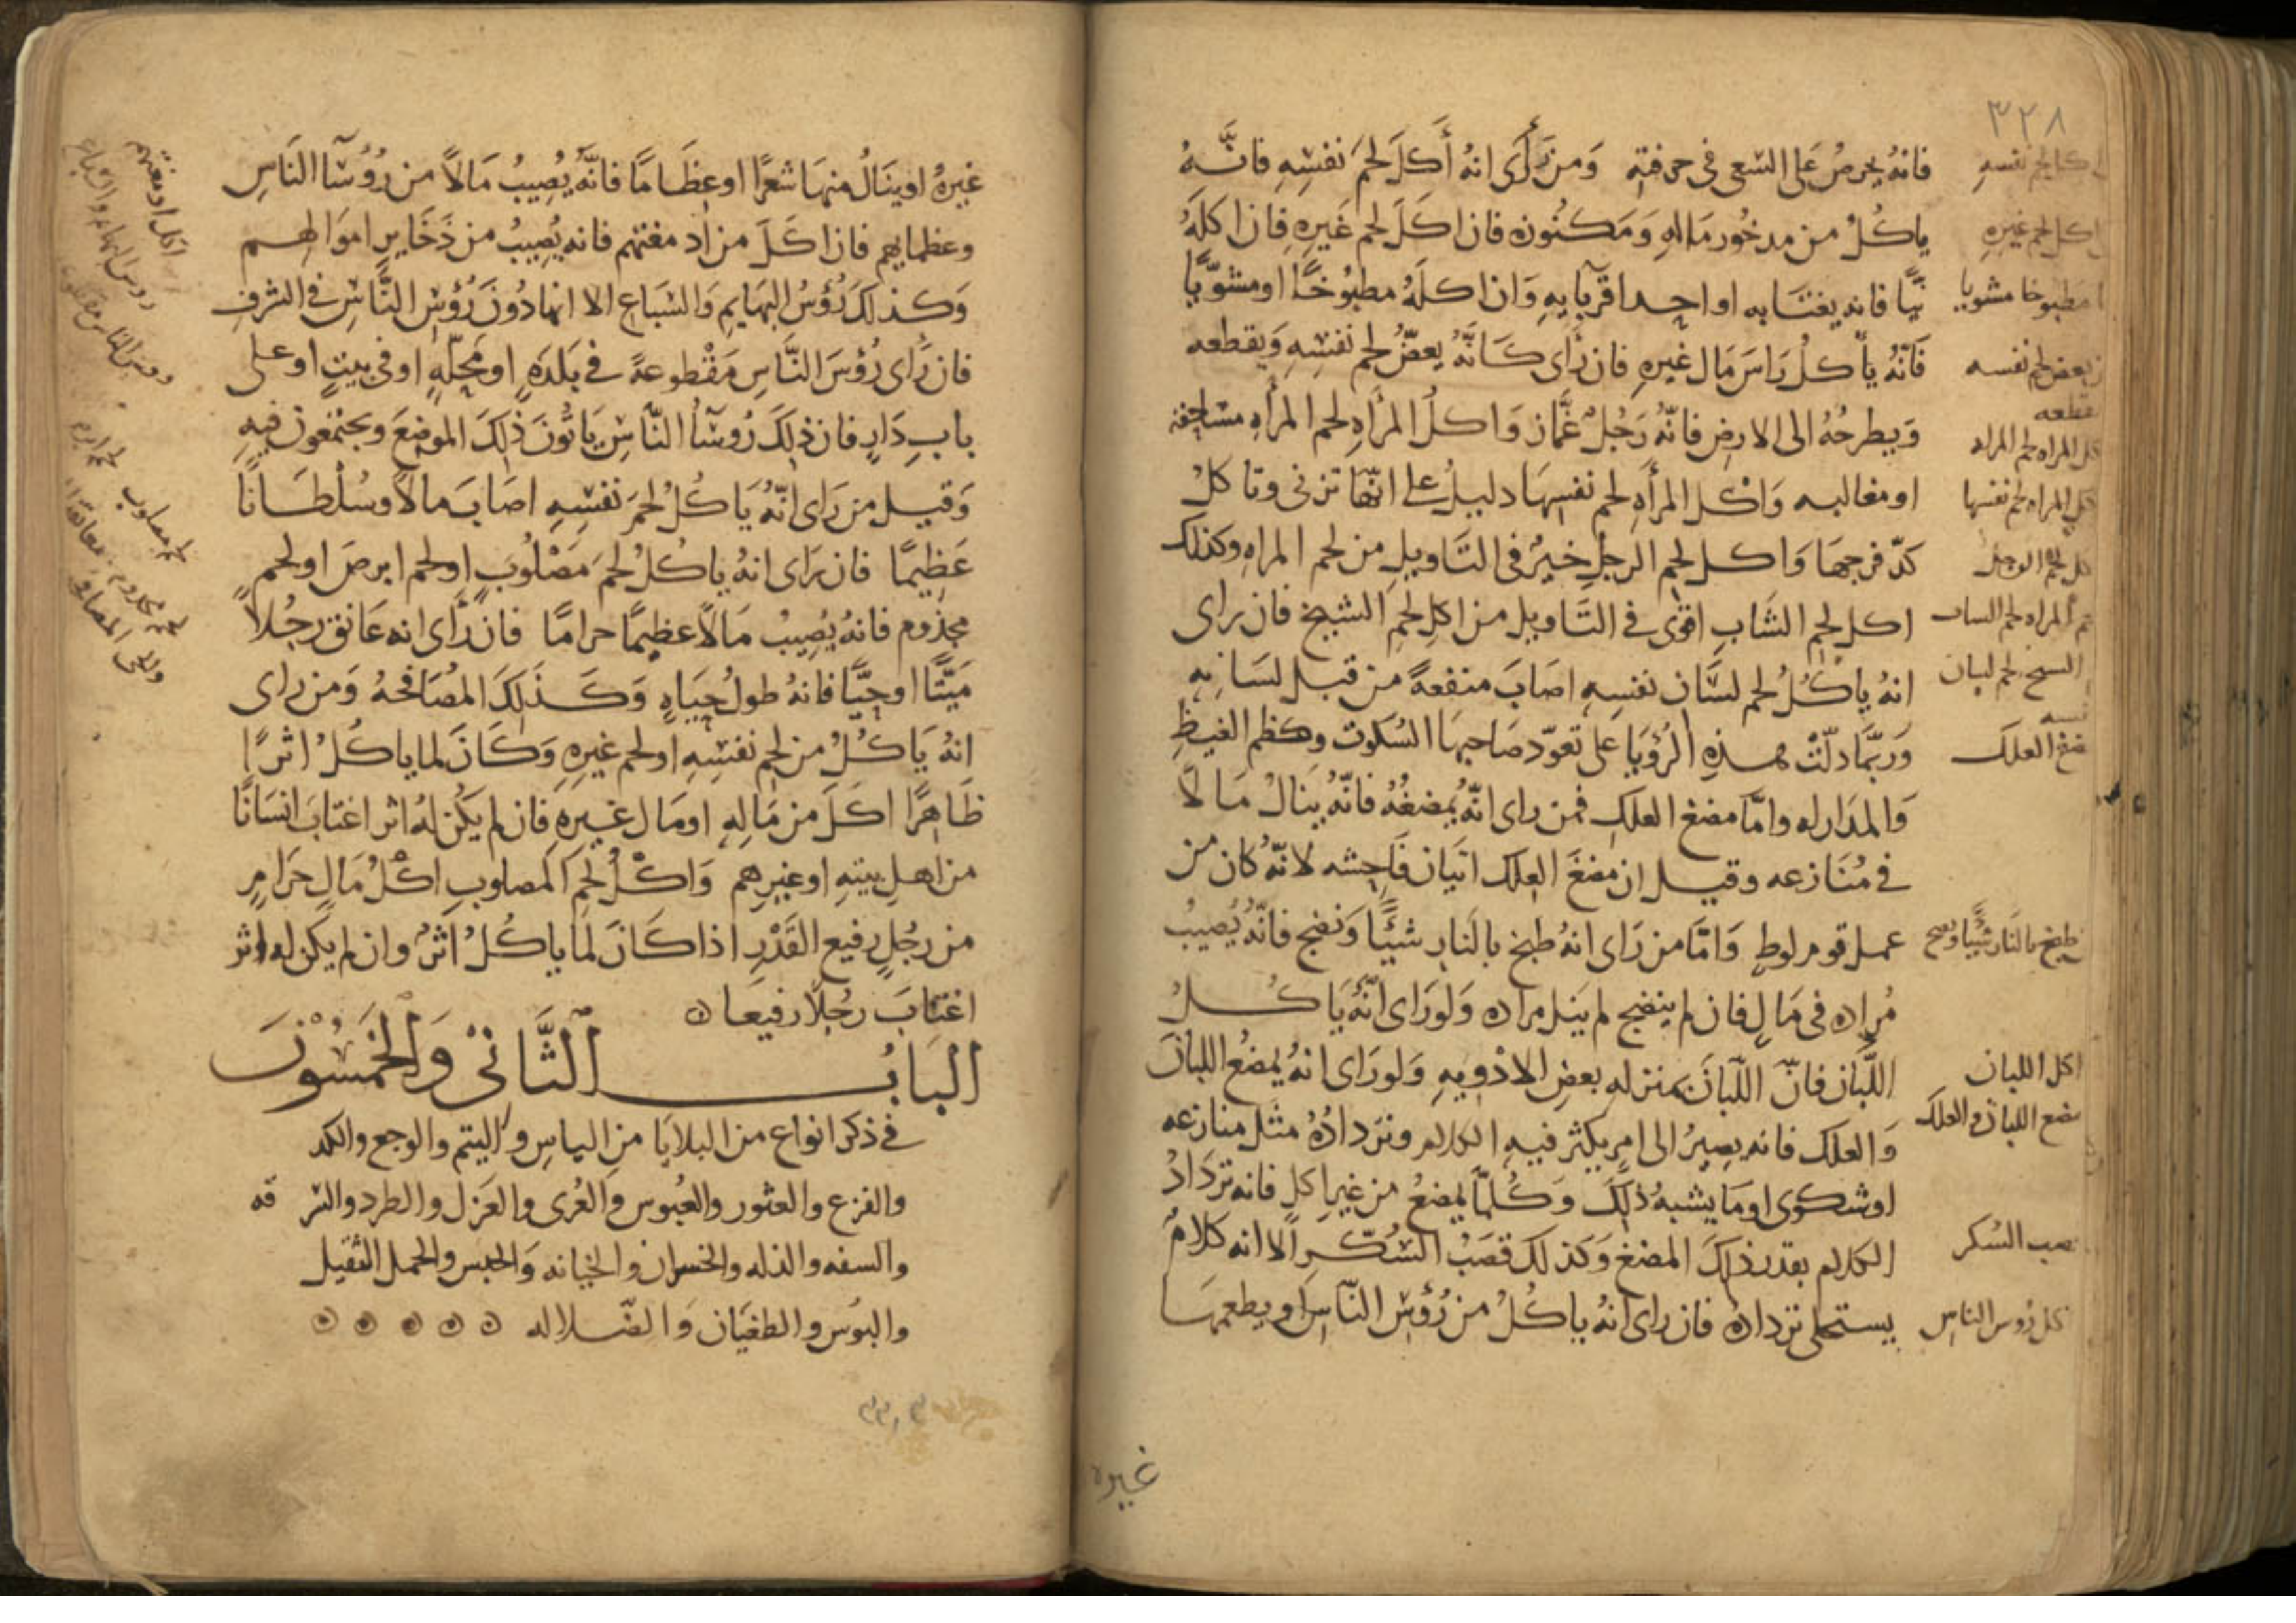 ٣٢٨
فانهُ يحرصُ على السعى فى حرفته وَمن رَأى انهُ أَكَلَ لحمَ نفسِهِ فانَّهُ
ياكُلُ من مدخُور مَالهِ وَمَكنُونه فان اكَلَ لحم غَيرِهِ فان اكلَهُ
نيًّا فانه يغتَابه او احد اقربآيهِ وَان اكلَهُ مطبُوخًا او مشوّيًا
فَانّهُ يأكلُ رَاسَ مَال غيرهِ فان رَأى كَانَّهُ يعضّ لحم نفسِهِ وَيقطعه
وَيطرحُهُ الى الارض فانّهُ رَجُلٌ غمَّاز وَاكلُ المرْأهِ لحم المرأهِ مساحقه
او مغالبه وَاكل المرأهِ لحم نفسِهَا دليلٌ على انّهَا تزنى وتاكلُ
كدّ فرجهَا وَاكل لحم الرجلِ خيرٌ فى التَاويلِ من لحم المراهِ وكذلك
اكل لحم الشَابِ اقوى فى التَاويل من اكلِ لحمِ الشيخ فان راى
انهُ ياكُلُ لحم لسَان نفسِهِ اصَابَ منفعةً من قبل لسَانِهِ
وَربَّمَا دلّتْ هذهِ الرُؤيَا على تعوّد صَاحبهَا السُكوت وكظم الغيظِ
وَالمدَارله وامّا مضغ العلكِ فمن راى انّهُ يمضغُهُ فانّهُ ينالُ مَالاً
فى مُنَازعه وقيل ان مضغَ العِلك اتيان فَاحِشه لانّهُ كان من
عمل قوم لوطٍ وَامّا من رَاى انهُ طبخ بالنَارِ شيئًا وَنضج فانّهُ يُصيبُ
مُراده فى مَالٍ فان لم ينضج لم يَنل مراده وَلو رَاى انّهُ يَاكُلُ
اللّبَان فانّ اللّبَانَ بمنزله بعضِ الادْويهِ وَلو رَاى انهُ يمضغُ اللبانَ
وَالعلك فانه يصِيرُ الى امرٍ يكثر فيهِ الكلام وتردادُهُ مثل منازعه
او شكوى او مَا يشبهُ ذلكَ وَكُلّمَا يمضغُ من غيرِ اكلٍ فانه تردَادُ
الكلام بقدر ذلكَ المضغ وَكذلك قصَبُ السُكّرِ الا انه كلامٌ
يستحلى ترداده فان راى انهُ ياكُلُ من رُؤسِ النّاسِ او يطعمهَا
اكل لحم نفسهِ
اكل لحم غيرِهِ
مطبوخا مشويا
يعض لحم نفسه
يقطعه
اكل المراه لحم المراه
اكل المراه لحم نفسها
اكل لحم الرجل
لحم المراه لحم الشاب
الشيخ لحم لسان
نفسه
مضغ العلك
طبخ بالنار شيئًا ونضج
اكل اللبان
مضع اللبان والعلك
قصب السُكر
اكل رُوس الناسِ
غيره
غيرهُ او ينَالُ منهَا شعرًا او عظَامًا فانَّهُ يُصِيبُ مَالاً من رُوُسَآ النَاسِ
وعظمايهم فان اكَلَ من ادمغتهم فانه يُصِيبُ من ذَخَايرِ اموَالهم
وَكذلكَ رُؤسُ البهَايمِ وَالسّبَاعِ الا انهَا دُونَ رُؤسِ النَّاسِ فى الشرفِ
فان رَاى رُؤسَ النَّاسِ مَقْطوعةً فى بَلدَهٍ او محِلّهٍ او فى بيتٍ او على
بابِ دَارٍ فان ذلِكَ رُوسَآُ النّاسِ يَاتُونَ ذلِكَ الموضِعَ وَيجتمعون فيهِ
وَقيل من رَاى انّهُ يَاكُلُ لحمَ نفسِهِ اصَابَ مالاً وسُلْطَانًا
عَظِيمًا فان رَاى انهُ ياكُلُ لحمَ مَصْلُوبٍ او لحم ابرصَ او لحمٍ
مجذوم فانهُ يُصِيبُ مَالاً عظيمًا حرامًا فان رَأى انه عَانق رجُلاً
مَيّتًا او حيًّا فانهُ طولُ حيَاهٍ وَكَذَلكَ المُصَافحهُ وَمن راى
انهُ يَاكُلُ من لحم نفسِهِ او لحم غيرِهِ وَكَانَ لما ياكُلُ اثرًا
ظَاهرًا اكلَ من مَالهِ او مَال غيرهِ فان لم يَكُن لهُ اثر اغتابَ انسَانًا
من اهلِ بيتهِ او غيرِهم وَاكْلُ لحم المصلوبِ اكْلُ مَالٍ حَرَامٍ
من رجُلٍ رفيع القَدْرِ اذا كَانَ لما ياكُلُ اَثرٌ وان لم يكن له اثر
اغتابَ رجُلاً رفيعَا
البَابُ الثَّانى وَالخَمسُونَ
فى ذكر انواع من البلايَا منِ الياسِ و اليتم والوجع والكمد
والفزع والعثور والعُبُوس وَالعُرى والعَزل والطرد والسرقه
والسفه والذله والخسران والخيانه وَالحبس والحمل الثقيل
والبؤس والطغيَان وَالضّلاله
اكل ادمغتهم
روس البهايم والسباع
روس الناس مقطوعه
لحم ابرص
لحم مصلوب
لحم مجذوم